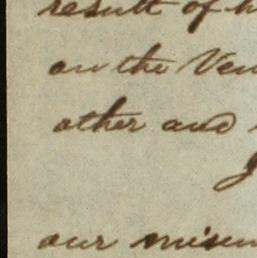 result of h
on the Ven
other and
J
our misen